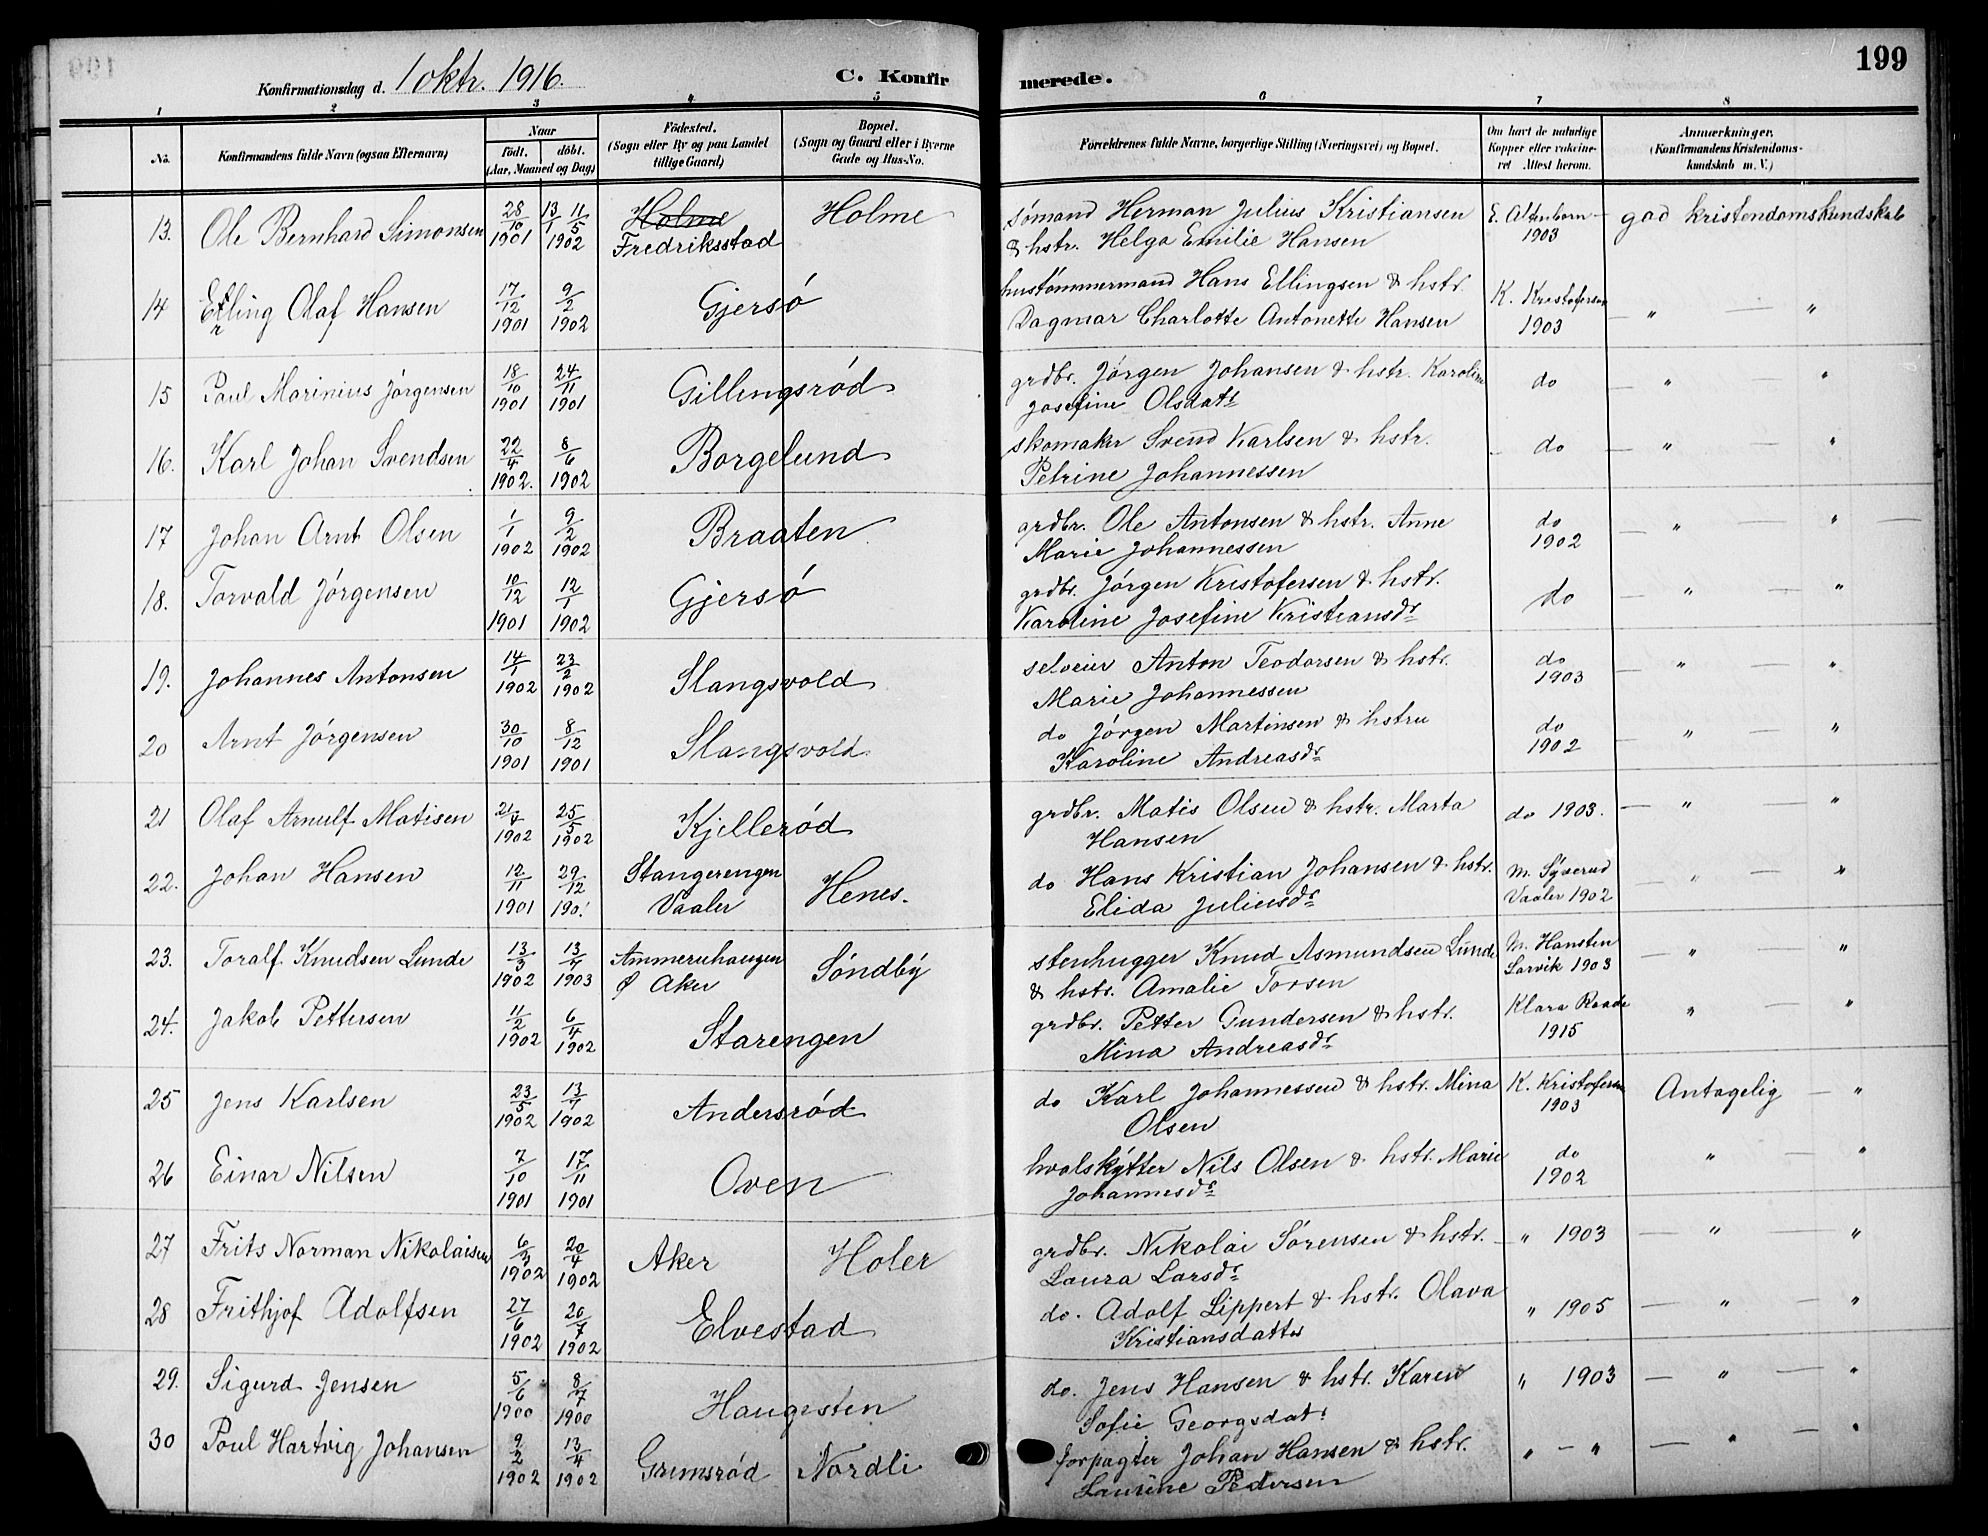 199
Konfirmationsdag d. 1 oktr. 1916.
C. Konfirmerede.
1 2 3 4 5 6 7 8
No.
Konfirmandens fulde Navn (ogsaa Efternavn)
Naar
født. døbt.
(Aar, Maaned og Dag)
Fødested.
(Sogn eller By og paa Landet
tillige Gaard)
Bopæl.
(Sogn og Gaard eller i Byerne
Gade og Hus-No.
Forældrenes fulde Navne, borgerlige Stilling (Næringsvei) og Bopæl.
Om havt de naturlige
Kopper eller vakcine-
ret Attest herom.
Anmærkninger.
(Konfirmandens Kristendoms-
kundskab m. V.)
13. Ole Bernhard Simonsen 28/10 1901 13/1 11/5 1902 Holme Fredriksstad Holme sømand Herman Julius Kristiansen E. Altenborn 1903 god kristendomskundskab
& hstr. Helga Emilie Hansen
14 Erling Olaf Hansen 17/12 1901 9/2 1902 Gjersø hustømmermand Hans Ellingsen & hstr. K. Kristofersen 1903 — " — "
Dagmar Charlotte Antonette Hansen
15 Paul Marinius Jørgensen 18/10 1901 24/11 1901 Gillingsrød grdbr. Jørgen Johansen & hstr. Karoline do — " "
Josefine Olsdatr
16. Karl Johan Svendsen 22/4 1902. 8/6 1902 Borgelund skomaker Svend Karlsen & hstr. do — " — "
Petrine Johannessen
17 Johan Arnt Olsen 1/1 1902 9/2 1902 Braaten grdbr. Ole Antonsen & hstr. Anne do 1902 — " " —
Marie Johannessen
18. Torvald Jørgensen 10/12 1901 12/1 1902 Gjersø grdbr. Jørgen Kristofersen & hstr. do — " — "
Karoline Josefine Kristiansdr
19. Johannes Antonsen 14/1 1902 23/2 1902 Slangsvold selveier Anton Teodorsen & hstr. do 1903 — " — "
Marie Johannessen
20 Arnt Jørgensen 30/10 1901 8/12 1901 Slangsvold do Jørgen Martinsen & hstru do 1902 — " — "
Karoline Andreasdr
21 Olaf Arnulf Matisen 21/4 1902 25/5 1902 Kjellerød grdbr. Matis Olsen & hstr. Marta do 1903. — " — "
Hansen
22. Johan Hansen 12/11 1901 29/12 190. Stangerengen Vaaler Henes. do Hans Kristian Johansen & hstr. M. Syverud Vaaler 1902 — " — "
Elida Juliusdr
23. Toralf Knudsen Lunde 13/3 1902 13/7 1903 Ammeruhaugen Ø Aker Søndby stenhugger Knud Asmundsen Lunde M. Hansten Larvik 1903 — " — "
& hstr. Amalie Torsen
24. Jakob Pettersen 11/2 1902 6/4 1902 Starengen grdbr. Petter Gundersen & hstr. Klara Raade 1915 " — "
Mina Andreasdr
25 Jens Karlsen 23/5 1902 13/7 1902 Andersrød do Karl Johannessen & hstr. Mina K. Kristofersen 1903 Antagelig — "
Olsen
26 Einar Nilsen 7/10 1901 17/11 1901 Oven hvalskytter Nils Olsen & hstr. Marie do 1902 " — "
Johannesdr
27 Frits Norman Nikolaisen 6/3 1902 20/4 1902 Aker Holer grdbr. Nikolai Sørensen & hstr. — " 1903 — " — "
Laura Larsdr
28 Frithjof Adolfsen 27/6 1902 20/7 1902 Elvestad do. Adolf Lippert & hstr. Olava " 1905 — " — "
Kristiansdatter
29. Sigurd Jensen 5/6 1900 8/7 1900 Haugesten do. Jens Hansen & hstr. Karen " 1903 — " — "
Sofie Georgsdatr
30 Poul Hartvig Johansen 9/2 1902 13/4 1902 Grimsrød Nordli forpagter Johan Hansen & hstr. " — " — " — "
Laurine Pedersen